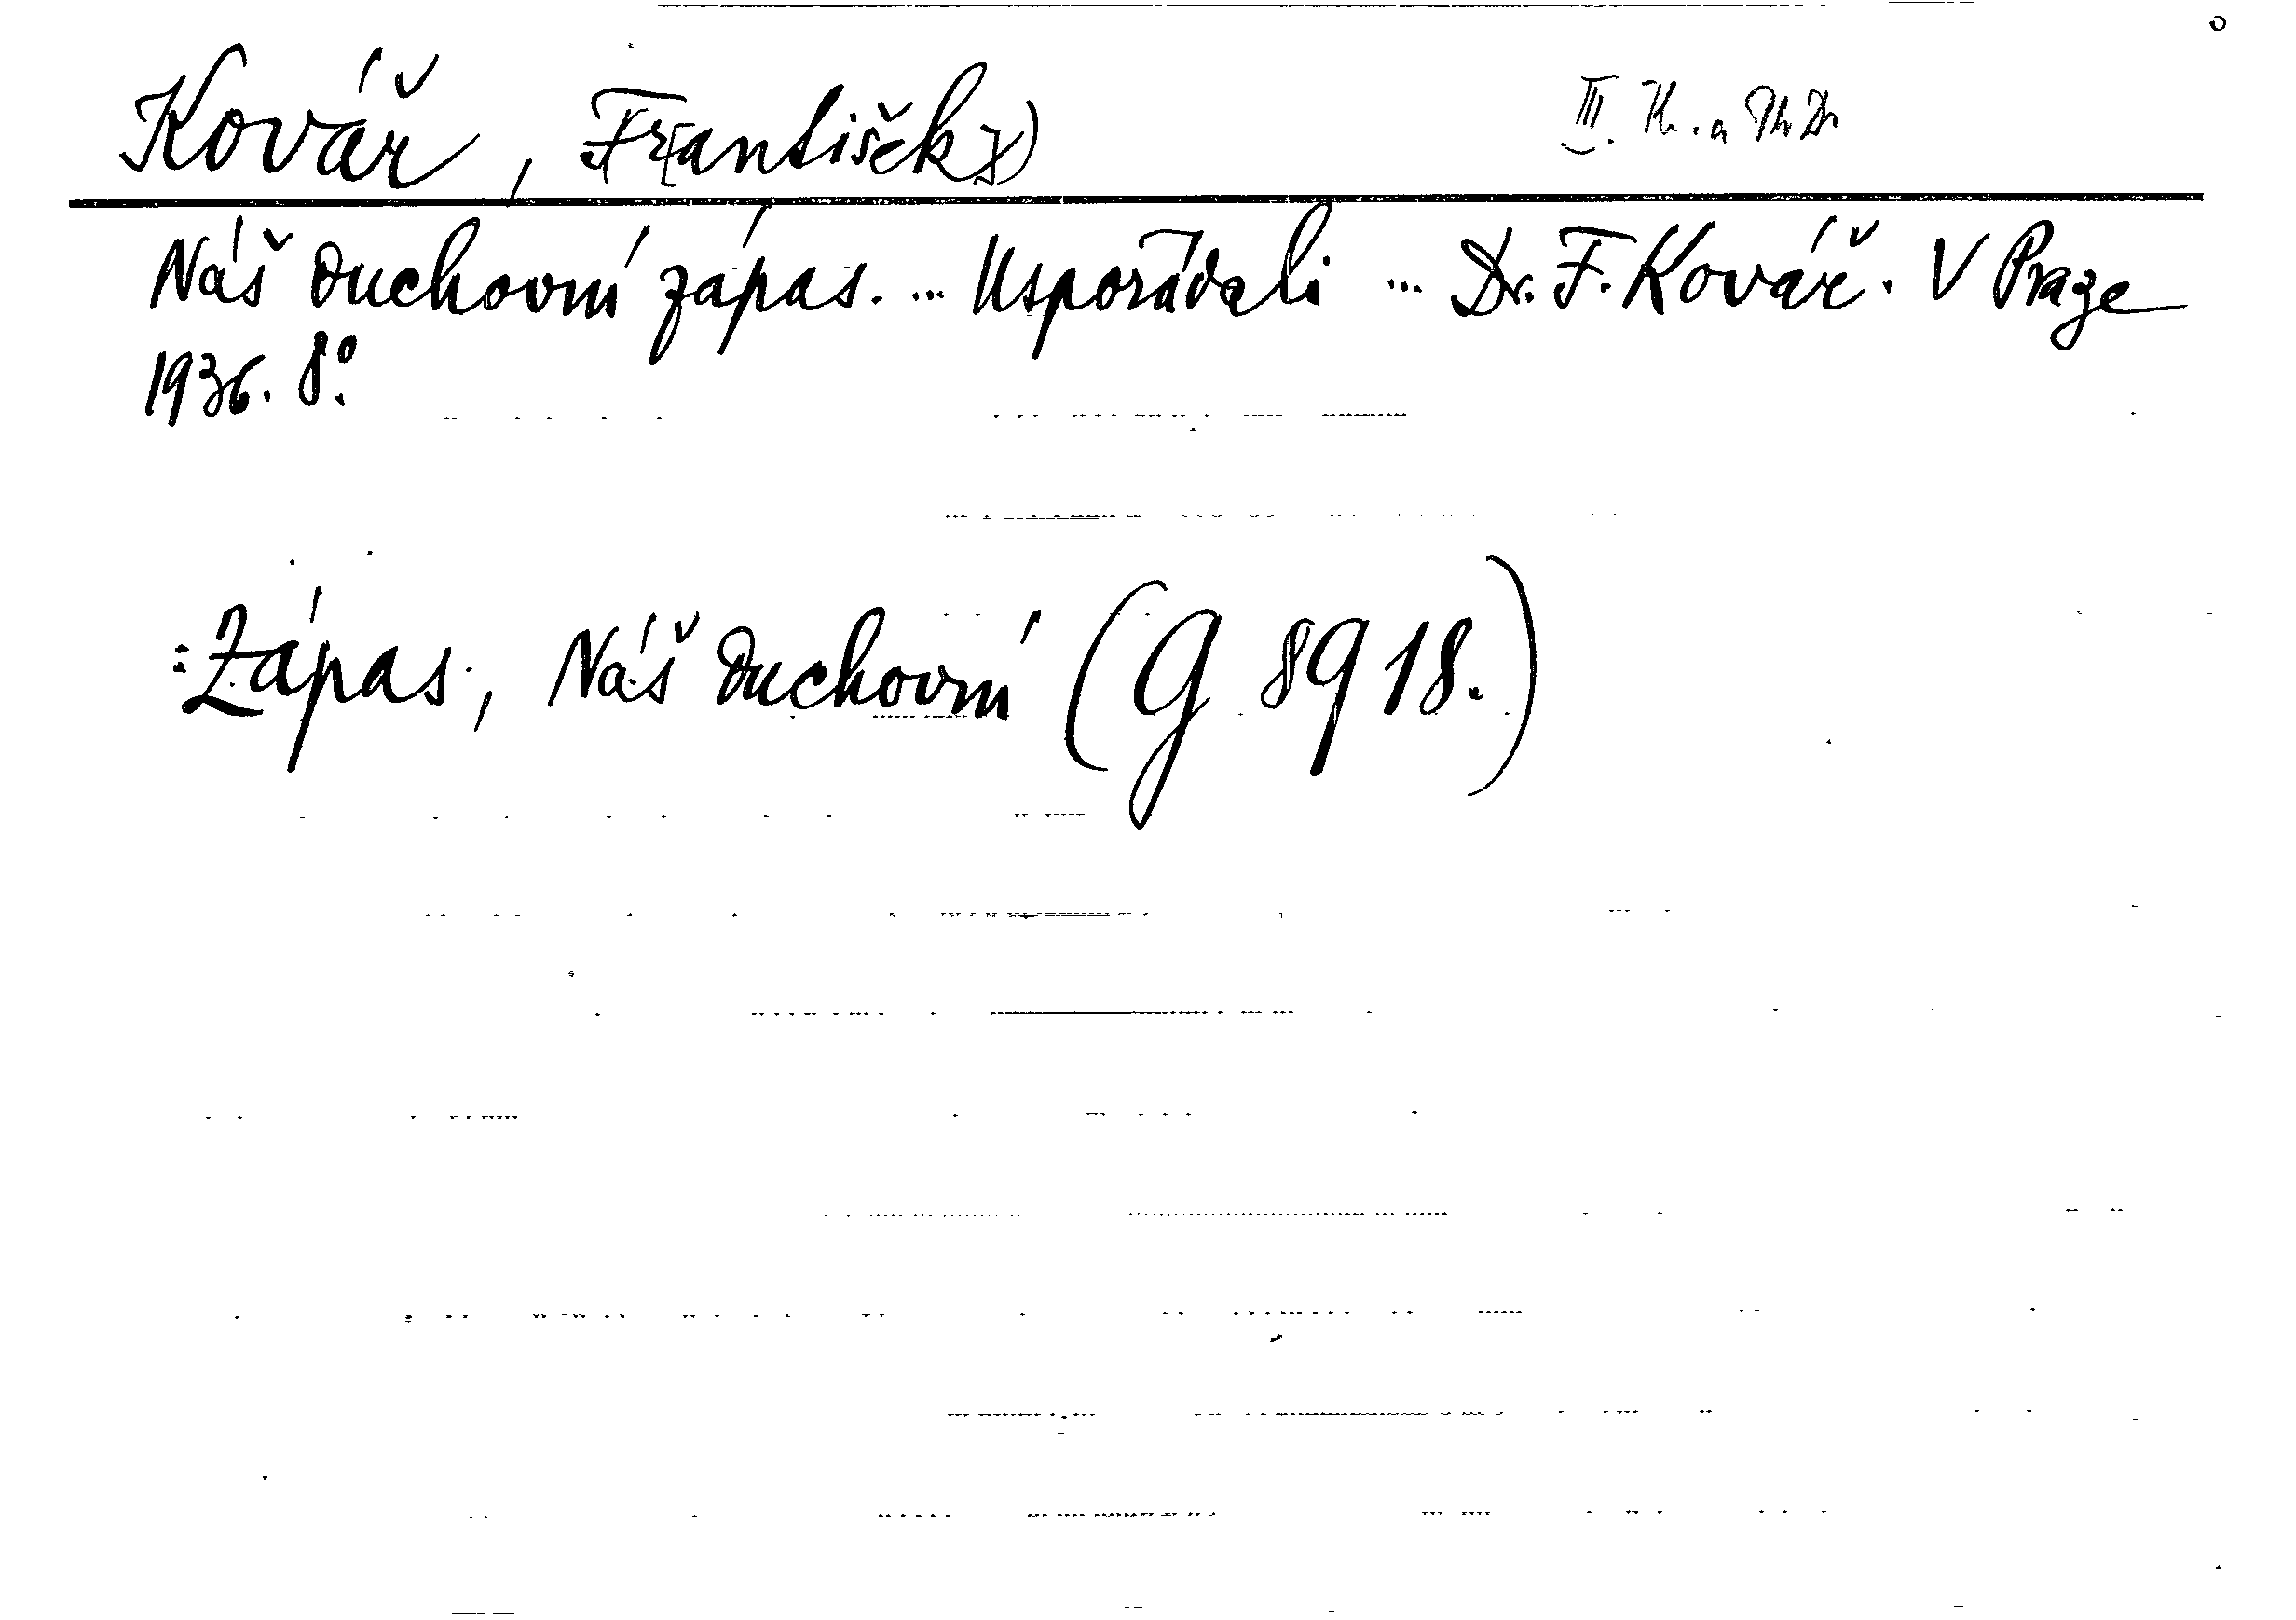 Kovář, Fr[antišek]) III. Th. a PhDr
Náš duchovní zápas. ... Uspořádali ... Dr. F. Kovář. V Praze
1936. 8°.
: Zápas, Náš duchovní (G 8918.)